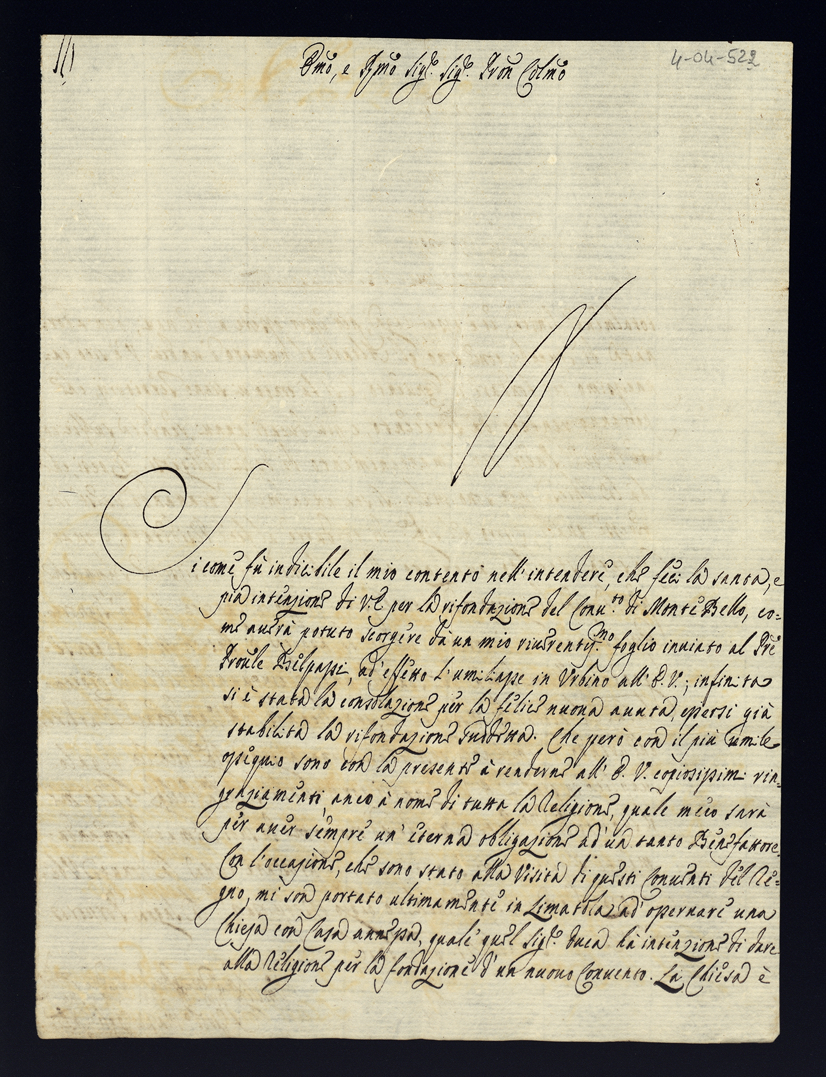 4-04-522
Emo, e Rmo Sig.r Sig.r Pron Colmo
Si come fù indicibile il mio contento nell'intendere, che feci la santa, e
pia intenzione di V.E. per la rifondazione del Conu.to di Monte Bello, co-
me auerà potuto scorgere da un mio riuerentis.mo foglio inuiato al Pre
Proule Delpapi, ad'effetto l'umiliasse in Vrbino all'E.V.; infinita
si è stata la consolazione per la felice nuoua auuta, essersi già
stabilita la rifondazione suddetta. Che però con il più umile
ossequio sono con la presente à renderne all'E.V. copiosissimi rin-
graziamenti, anco à nome di tutta la Religione, quale meco sarà
per auer sempre un'eterna obligazione ad'un tanto Benefattore.
Con l'occasione, che sono stato alla Visita di questi Conuenti del Re-
gno, mi son portato ultimamente in Limatola ad'osseruare una
Chiesa con Casa annessa, quale quel Sig.r Duca hà intenzione di dare
alla Religione per la fondazione d'un nuouo Conuento. La Chiesa è